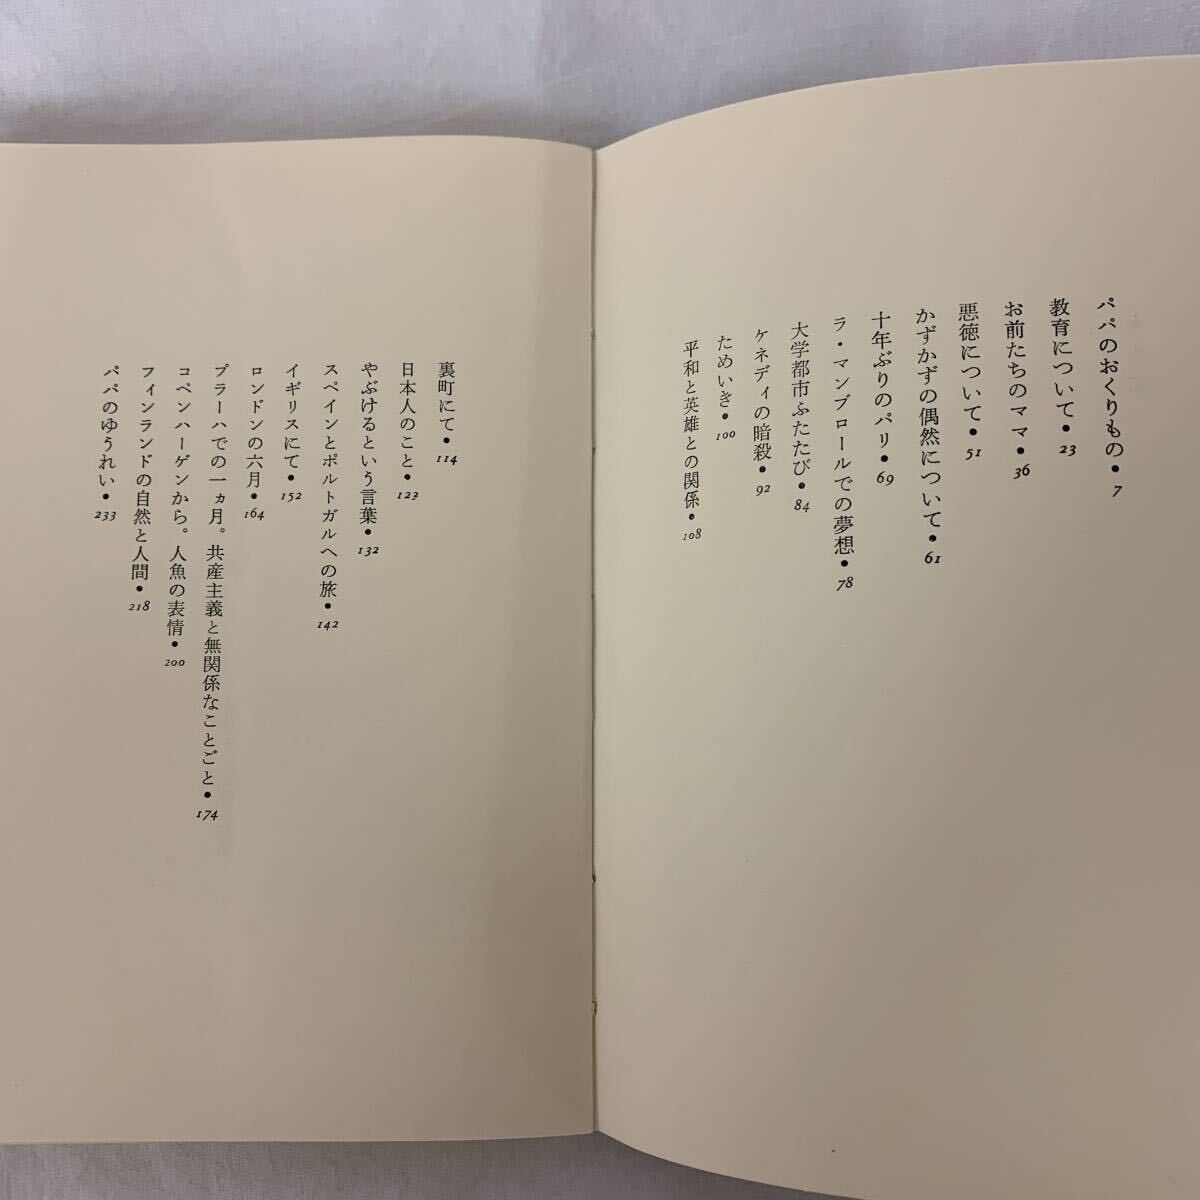 パパのおくりもの・7
教育について・23
お前たちのママ・36
悪徳について・51
かずかずの偶然について・61
十年ぶりのパリ・69
ラ・マンブロールでの夢想・78
大学都市ふたたび・84
ケネディの暗殺・92
ためいき・100
平和と英雄との関係・108
裏町にて・114
日本人のこと・123
やぶけるという言葉・132
スペインとポルトガルへの旅・142
イギリスにて・152
ロンドンの六月・164
プラーハでの一ヵ月。共産主義と無関係なことごと・174
コペンハーゲンから。人魚の表情・200
フィンランドの自然と人間・218
パパのゆうれい・233